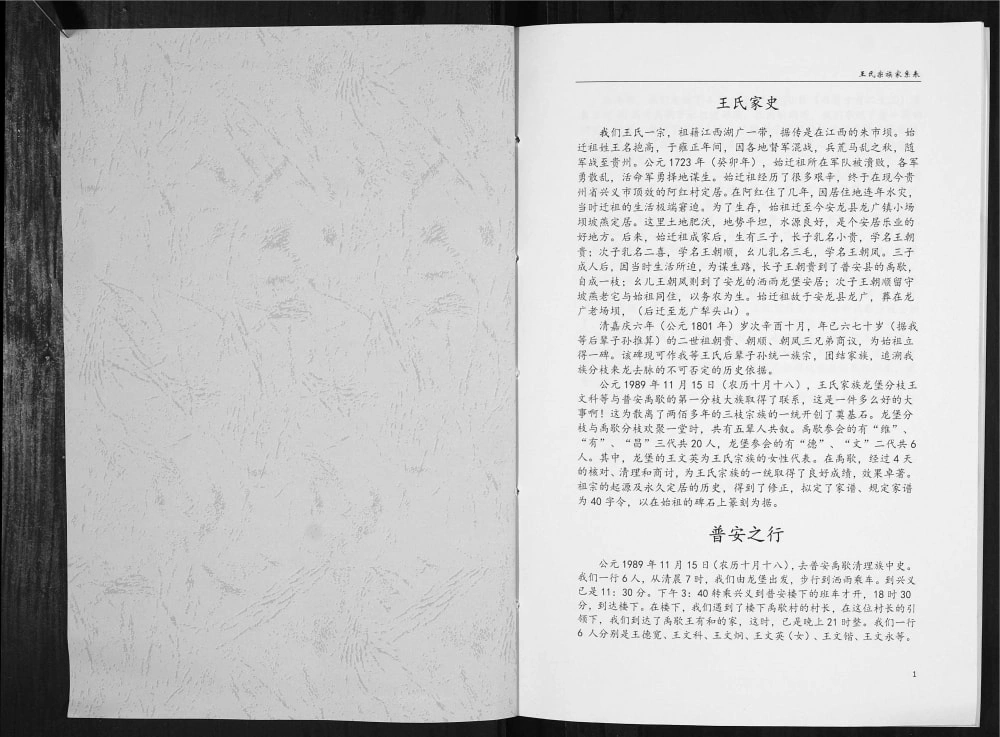 王氏宗族家系表
王氏家史
我们王氏一宗，祖籍江西湖广一带，据传是在江西的朱市坝。始
迁祖姓王名抱高，于雍正年间，因各地督军混战，兵荒马乱之秋，随
军战至贵州。公元 1723 年（癸卯年），始迁祖所在军队被溃败，各军
勇散乱，活命军勇择地谋生。始迁祖经历了很多艰辛，终于在现今贵
州省兴义市顶效的阿红村定居。在阿红住了几年，因居住地连年水灾，
当时迁祖的生活极端窘迫。为了生存，始祖迁至今安龙县龙广镇小场
坝坡燕定居。这里土地肥沃，地势平坦，水源良好，是个安居乐业的
好地方。后来，始迁祖成家后，生有三子，长子乳名小贵，学名王朝
贵；次子乳名二喜，学名王朝顺，幺儿乳名三毛，学名王朝凤。三子
成人后，因当时生活所迫，为谋生路，长子王朝贵到了普安县的禹歇，
自成一枝；幺儿王朝凤则到了安龙的洒雨龙堡安居；次子王朝顺留守
坡燕老宅与始祖同住，以务农为生。始迁祖故于安龙县龙广，葬在龙
广老场坝，（后迁至龙广犁头山）。
清嘉庆六年（公元 1801 年）岁次辛酉十月，年已六七十岁（据我
等后辈子孙推算）的二世祖朝贵、朝顺、朝凤三兄弟商议，为始祖立
得一碑。该碑现可作我等王氏后辈子孙统一族宗，团结家族，追溯我
族分枝来龙去脉的不可否定的历史依据。
公元 1989 年 11 月 15 日（农历十月十八），王氏家族龙堡分枝王
文科等与普安禹歇的第一分枝大族取得了联系，这是一件多么好的大
事啊！这为散离了两佰多年的三枝宗族的一统开创了奠基石。龙堡分
枝与禹歇分枝欢聚一堂时，共有五辈人共叙。禹歇参会的有“维”、
“有”、“昌”三代共 20 人，龙堡参会的有“德”、“文”二代共 6
人。其中，龙堡的王文英为王氏宗族的女性代表。在禹歇，经过 4 天
的核对、清理和商讨，为王氏宗族的一统取得了良好成绩，效果卓著。
祖宗的起源及永久定居的历史，得到了修正，拟定了家谱、规定家谱
为 40 字令，以在始祖的碑石上篆刻为据。
普安之行
公元 1989 年 11 月 15 日（农历十月十八），去普安禹歇清理族中史。
我们一行 6 人，从清晨 7 时，我们由龙堡出发，步行到洒雨乘车。到兴义
已是 11：30 分。下午 3：40 转乘兴义到普安楼下的班车才开，18 时 30
分，到达楼下。在楼下，我们遇到了楼下禹歇村的村长，在这位村长的引
领下，我们到达了禹歇王有和的家，这时，已是晚上 21 时整。我们一行
6 人分别是王德宽、王文科、王文炯、王文英（女）、王文锴、王文永等。
1